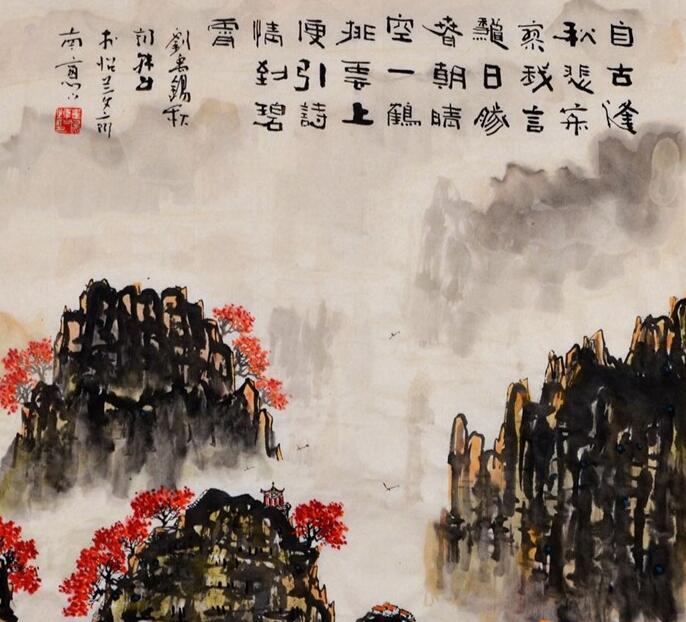 自古逢
秋悲寂
寥我言
龝日勝
春朝晴
空一鶴
排雲上
便引詩
情到碧
霄
劉禹錫秋
詞
於怡
南